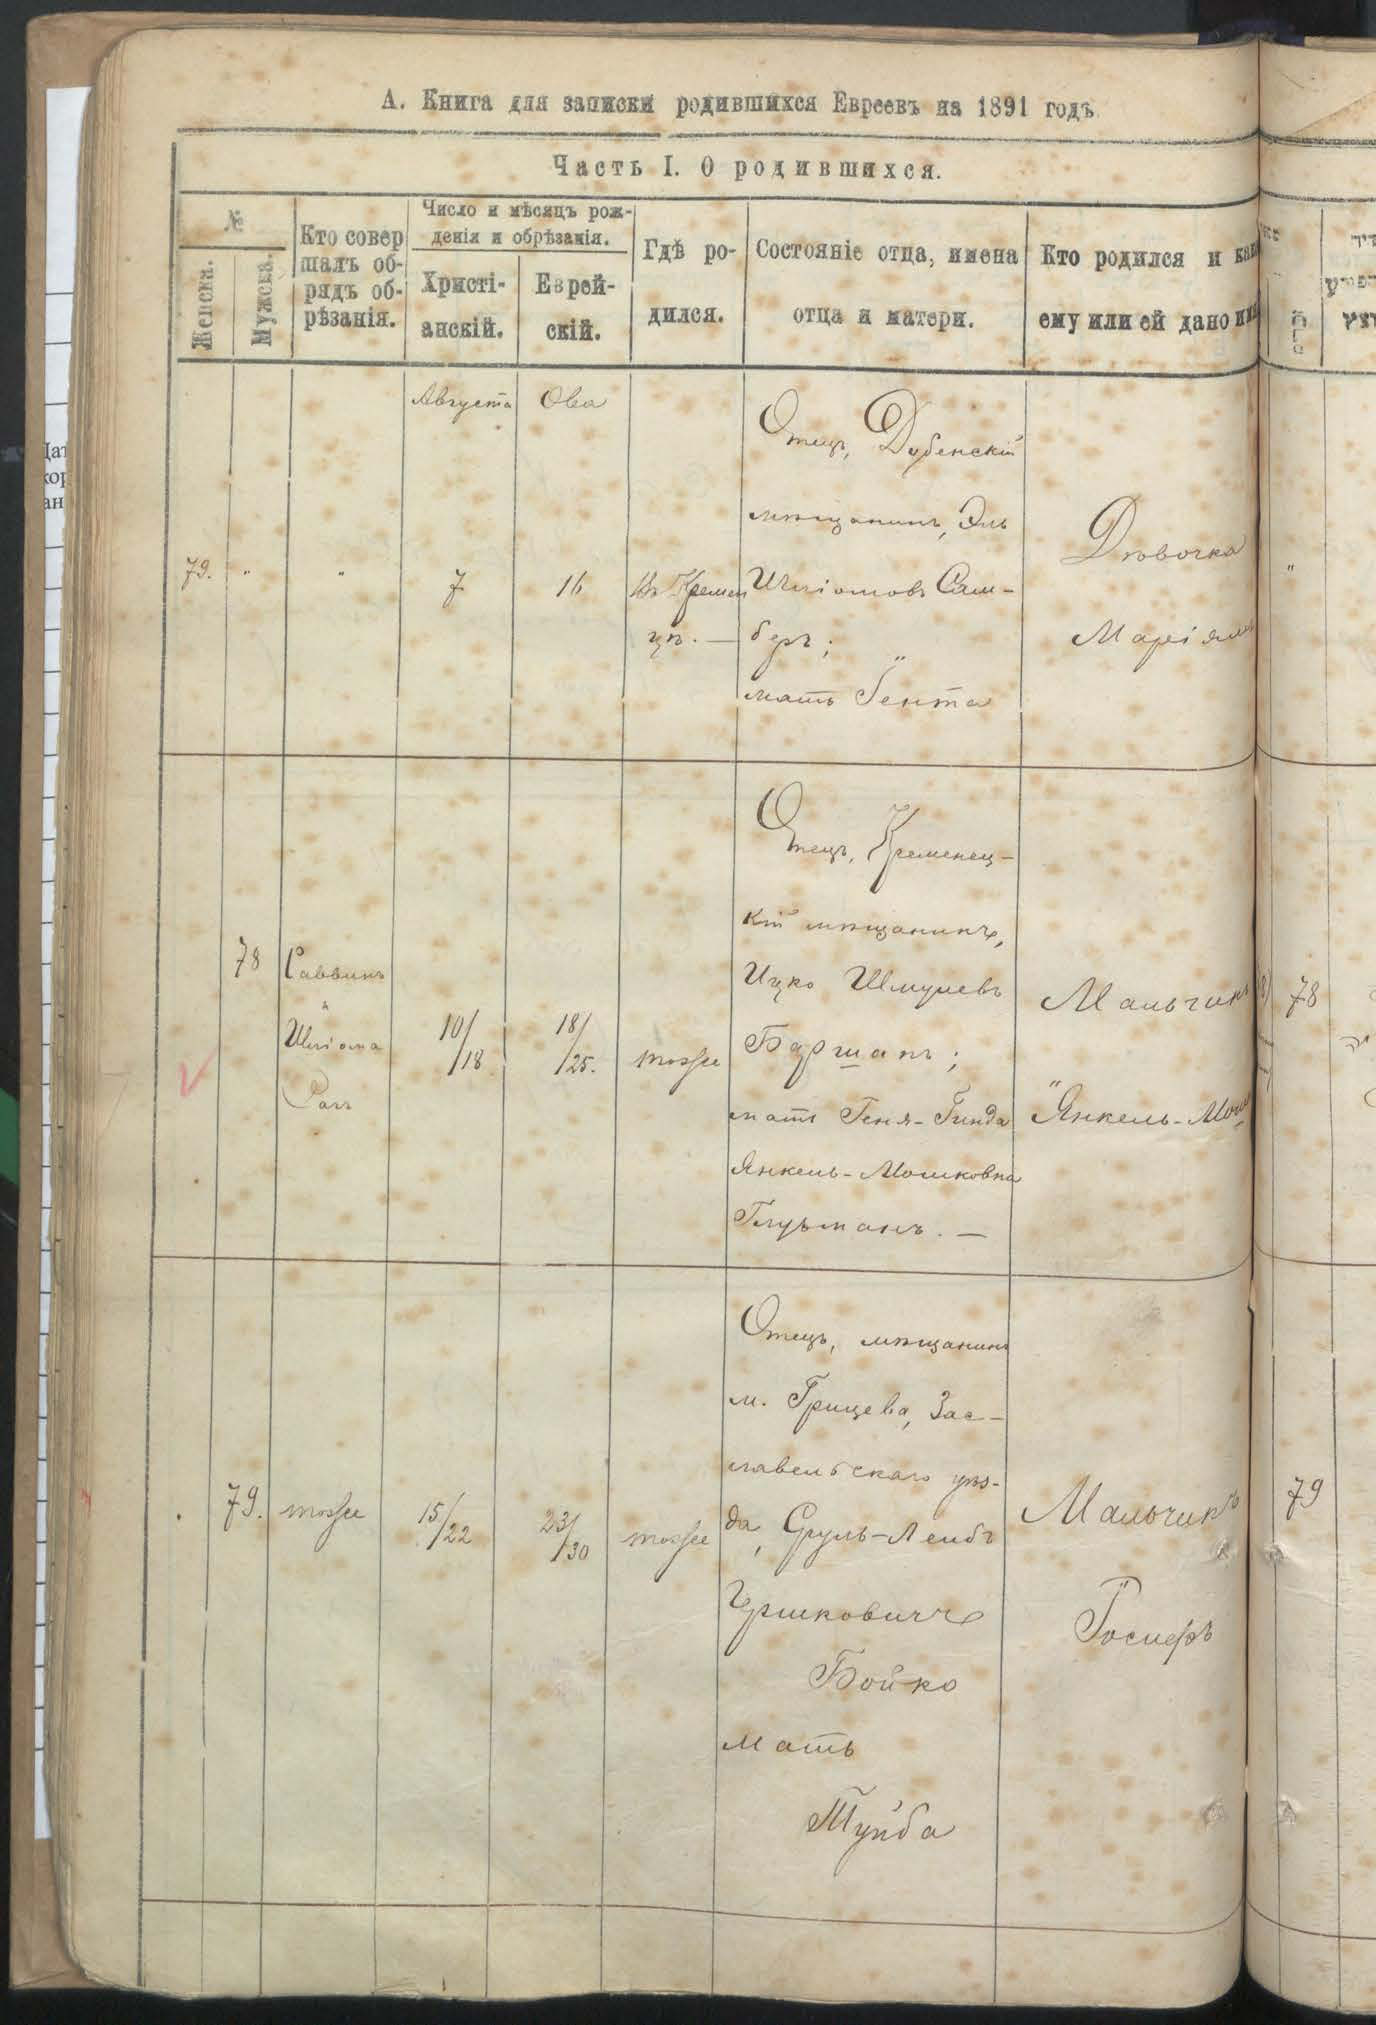 А. Книга для записки родившихся Евреевъ на 1891 годъ
Часть I. О родившихся.
№
Женска.
Мужска.
Кто совер
шалъ об-
рядъ об-
рѣзанія.
Число и мѣсяцъ рож-
денія и обрѣзанія.
Христі-
анскій.
Еврей-
скій.
Гдѣ ро-
дился.
Состояніе отца, имена
отца и матери.
Кто родился и
ему или ей дано
Августа
Ова
79.
"
"
7
16
Въ Кремен
цѣ. —
Отецъ, Дубенскій
мѣщанинъ, Эль
Шліомовъ Сам-
беръ;
мать Гента
Дѣвочка
Маріям
"
78
Саввинъ
и
Шліома
10/18
18/25.
тоже
Отецъ, Кременец-
кій мѣщанинъ,
Ицко Шмулевъ
Баршапъ;
мать Геня-Гинда
Янкель-Мошковна
Глузманъ. —
Мальчикъ
Янкель-Мош
78
79.
тоже
15/22
23/30
тоже
Отецъ, мѣщанинъ
м. Грицева, Зас-
лавельскаго уѣз-
да, Сруль-Лейбъ
Гершковичъ
Бойко
мать
Тунба
Мальчикъ
Госиферъ
79